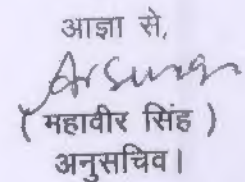 आज्ञा से,
( महावीर सिंह )
अनुसचिव।